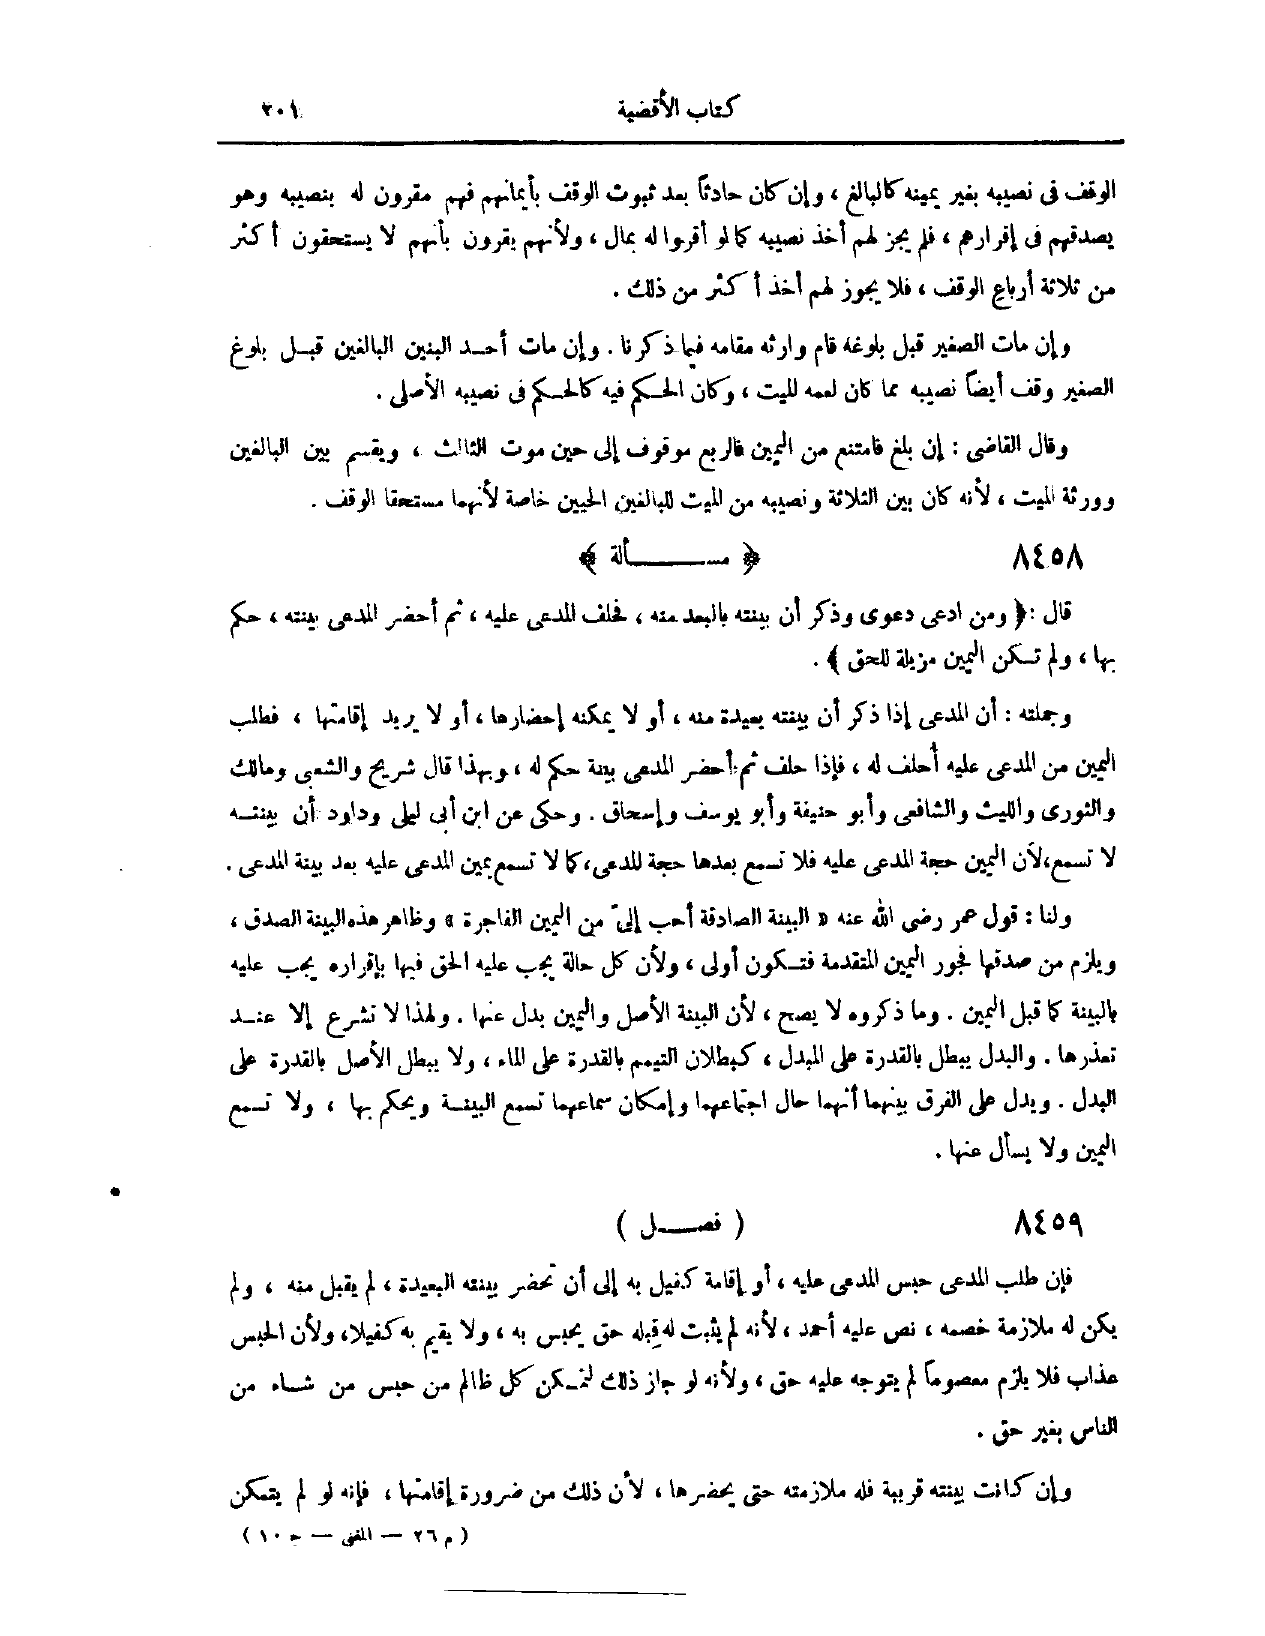 كتاب الأقضية ٢٠١
الوقف فى نصيبه بغير يمينه كالبالغ ، وإن كان حادثاً بعد ثبوت الوقف بأيمانهم فهم مقرون له بنصيبه وهو
يصدقهم فى إقرارهم ، فلم يجز لهم أخذ نصيبه كما لو أقروا له بمال ، ولأنهم يقرون بأنهم لا يستحقون أكثر
من ثلاثة أرباع الوقف ، فلا يجوز لهم أخذ أكثر من ذلك .
وإن مات الصغير قبل بلوغه قام وارثه مقامه فيما ذكرنا . وإن مات أحد البنين البالغين قبل بلوغ
الصغير وقف أيضاً نصيبه مما كان لعمه الميت ، وكان الحكم فيه كالحكم فى نصيبه الأصلى .
وقال القاضى : إن بلغ فامتنع من اليمين فالربع موقوف إلى حين موت الثالث ، ويقسم بين البالغين
وورثة الميت ، لأنه كان بين الثلاثة ونصيبه من الميت للبالغين الحيين خاصة لأنهما مستحقا الوقف .
٨٤٥٨ ﴿ مسألة ﴾
قال :﴿ ومن ادعى دعوى وذكر أن بينته بالبعد منه ، فحلف المدعى عليه ، ثم أحضر المدعى بينته ، حكم
بها ، ولم تكن اليمين مزيلة للحق ﴾ .
وجملته : أن المدعى إذا ذكر أن بينته بعيدة منه ، أو لا يمكنه إحضارها ، أو لا يريد إقامتها ، فطلب
اليمين من المدعى عليه أُحلف له ، فإذا حلف ثم أحضر المدعى بينة حكم له ، وبهذا قال شريح والشعبى ومالك
والثورى والليث والشافعى وأبو حنيفة وأبو يوسف وإسحاق . وحكى عن ابن أبى ليلى وداود أن بينته
لا تسمع، لأن اليمين حجة المدعى عليه فلا تسمع بعدها حجة المدعى، كما لا تسمع يمين المدعى عليه بعد بينة المدعى .
ولنا : قول عمر رضى الله عنه « البينة الصادقة أحب إلىّ من اليمين الفاجرة » وظاهر هذه البينة الصدق ،
ويلزم من صدقها فجور اليمين المتقدمة فتكون أولى ، ولأن كل حالة يجب عليه الحق فيها بإقراره يجب عليه
بالبينة كما قبل اليمين . وما ذكروه لا يصح ، لأن البينة الأصل واليمين بدل عنها . ولهذا لا تشرع إلا عند
تعذرها . والبدل يبطل بالقدرة على المبدل ، كبطلان التيمم بالقدرة على الماء ، ولا يبطل الأصل بالقدرة على
البدل . ويدل على الفرق بينهما أنهما حال اجتماعهما وإمكان سماعهما تسمع البينة ويحكم بها ، ولا تسمع
اليمين ولا يسأل عنها .
٨٤٥٩ ( فصل )
فإن طلب المدعى حبس المدعى عليه ، أو إقامة كفيل به إلى أن تحضر بينته البعيدة ، لم يقبل منه ، ولم
يكن له ملازمة خصمه ، نص عليه أحمد ، لأنه لم يثبت له قِبله حق يحبس به ، ولا يقيم به كفيلا، ولأن الحبس
عذاب فلا يلزم معصوماً لم يتوجه عليه حق ، ولأنه لو جاز ذلك لتمكن كل ظالم من حبس من شاء من
الناس بغير حق .
وإن كانت بينته قريبة فله ملازمته حتى يحضرها ، لأن ذلك من ضرورة إقامتها ، فإنه لو لم يتمكن
( م ٢٦ — المغنى — ج ١٠ )